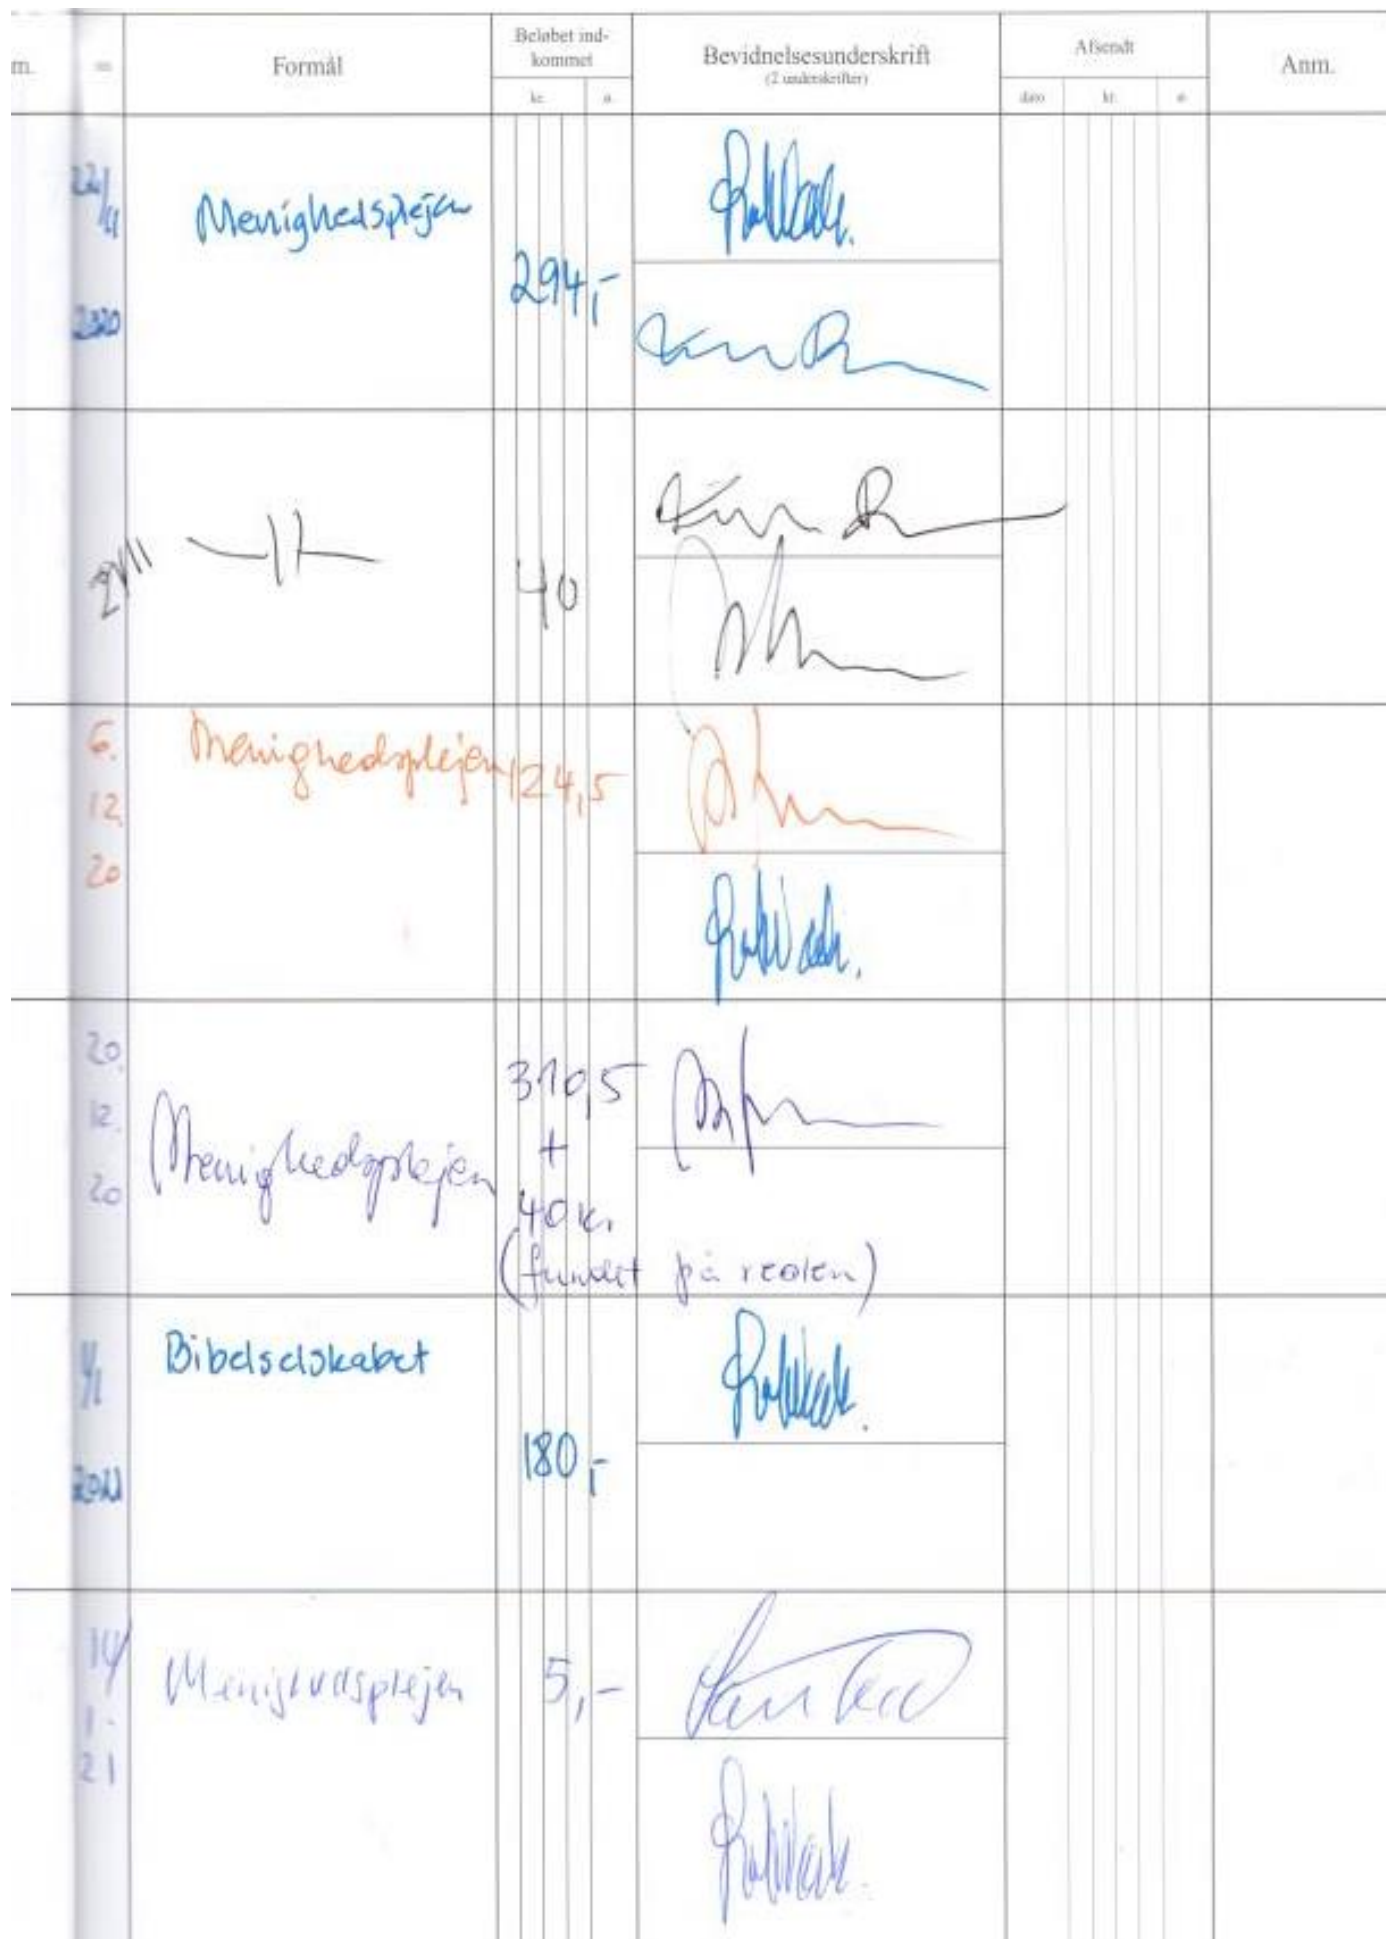 m.
Formål
Beløbet ind-
kommet
kr.
ø.
Bevidnelsesunderskrift
(2 underskrifter)
Afsendt
dato
kr.
ø.
Anm.
22/11
2020
Menighedsplejen
294,-
29/11
40
6.
12.
20
Menighedsplejen
124,5
20.
12.
20
Menighedsplejen
310,5
+
40 kr.
(fundet på reolen)
1/1
2021
Bibelselskabet
180,-
14/
1.
21
Menighedsplejen
5,-